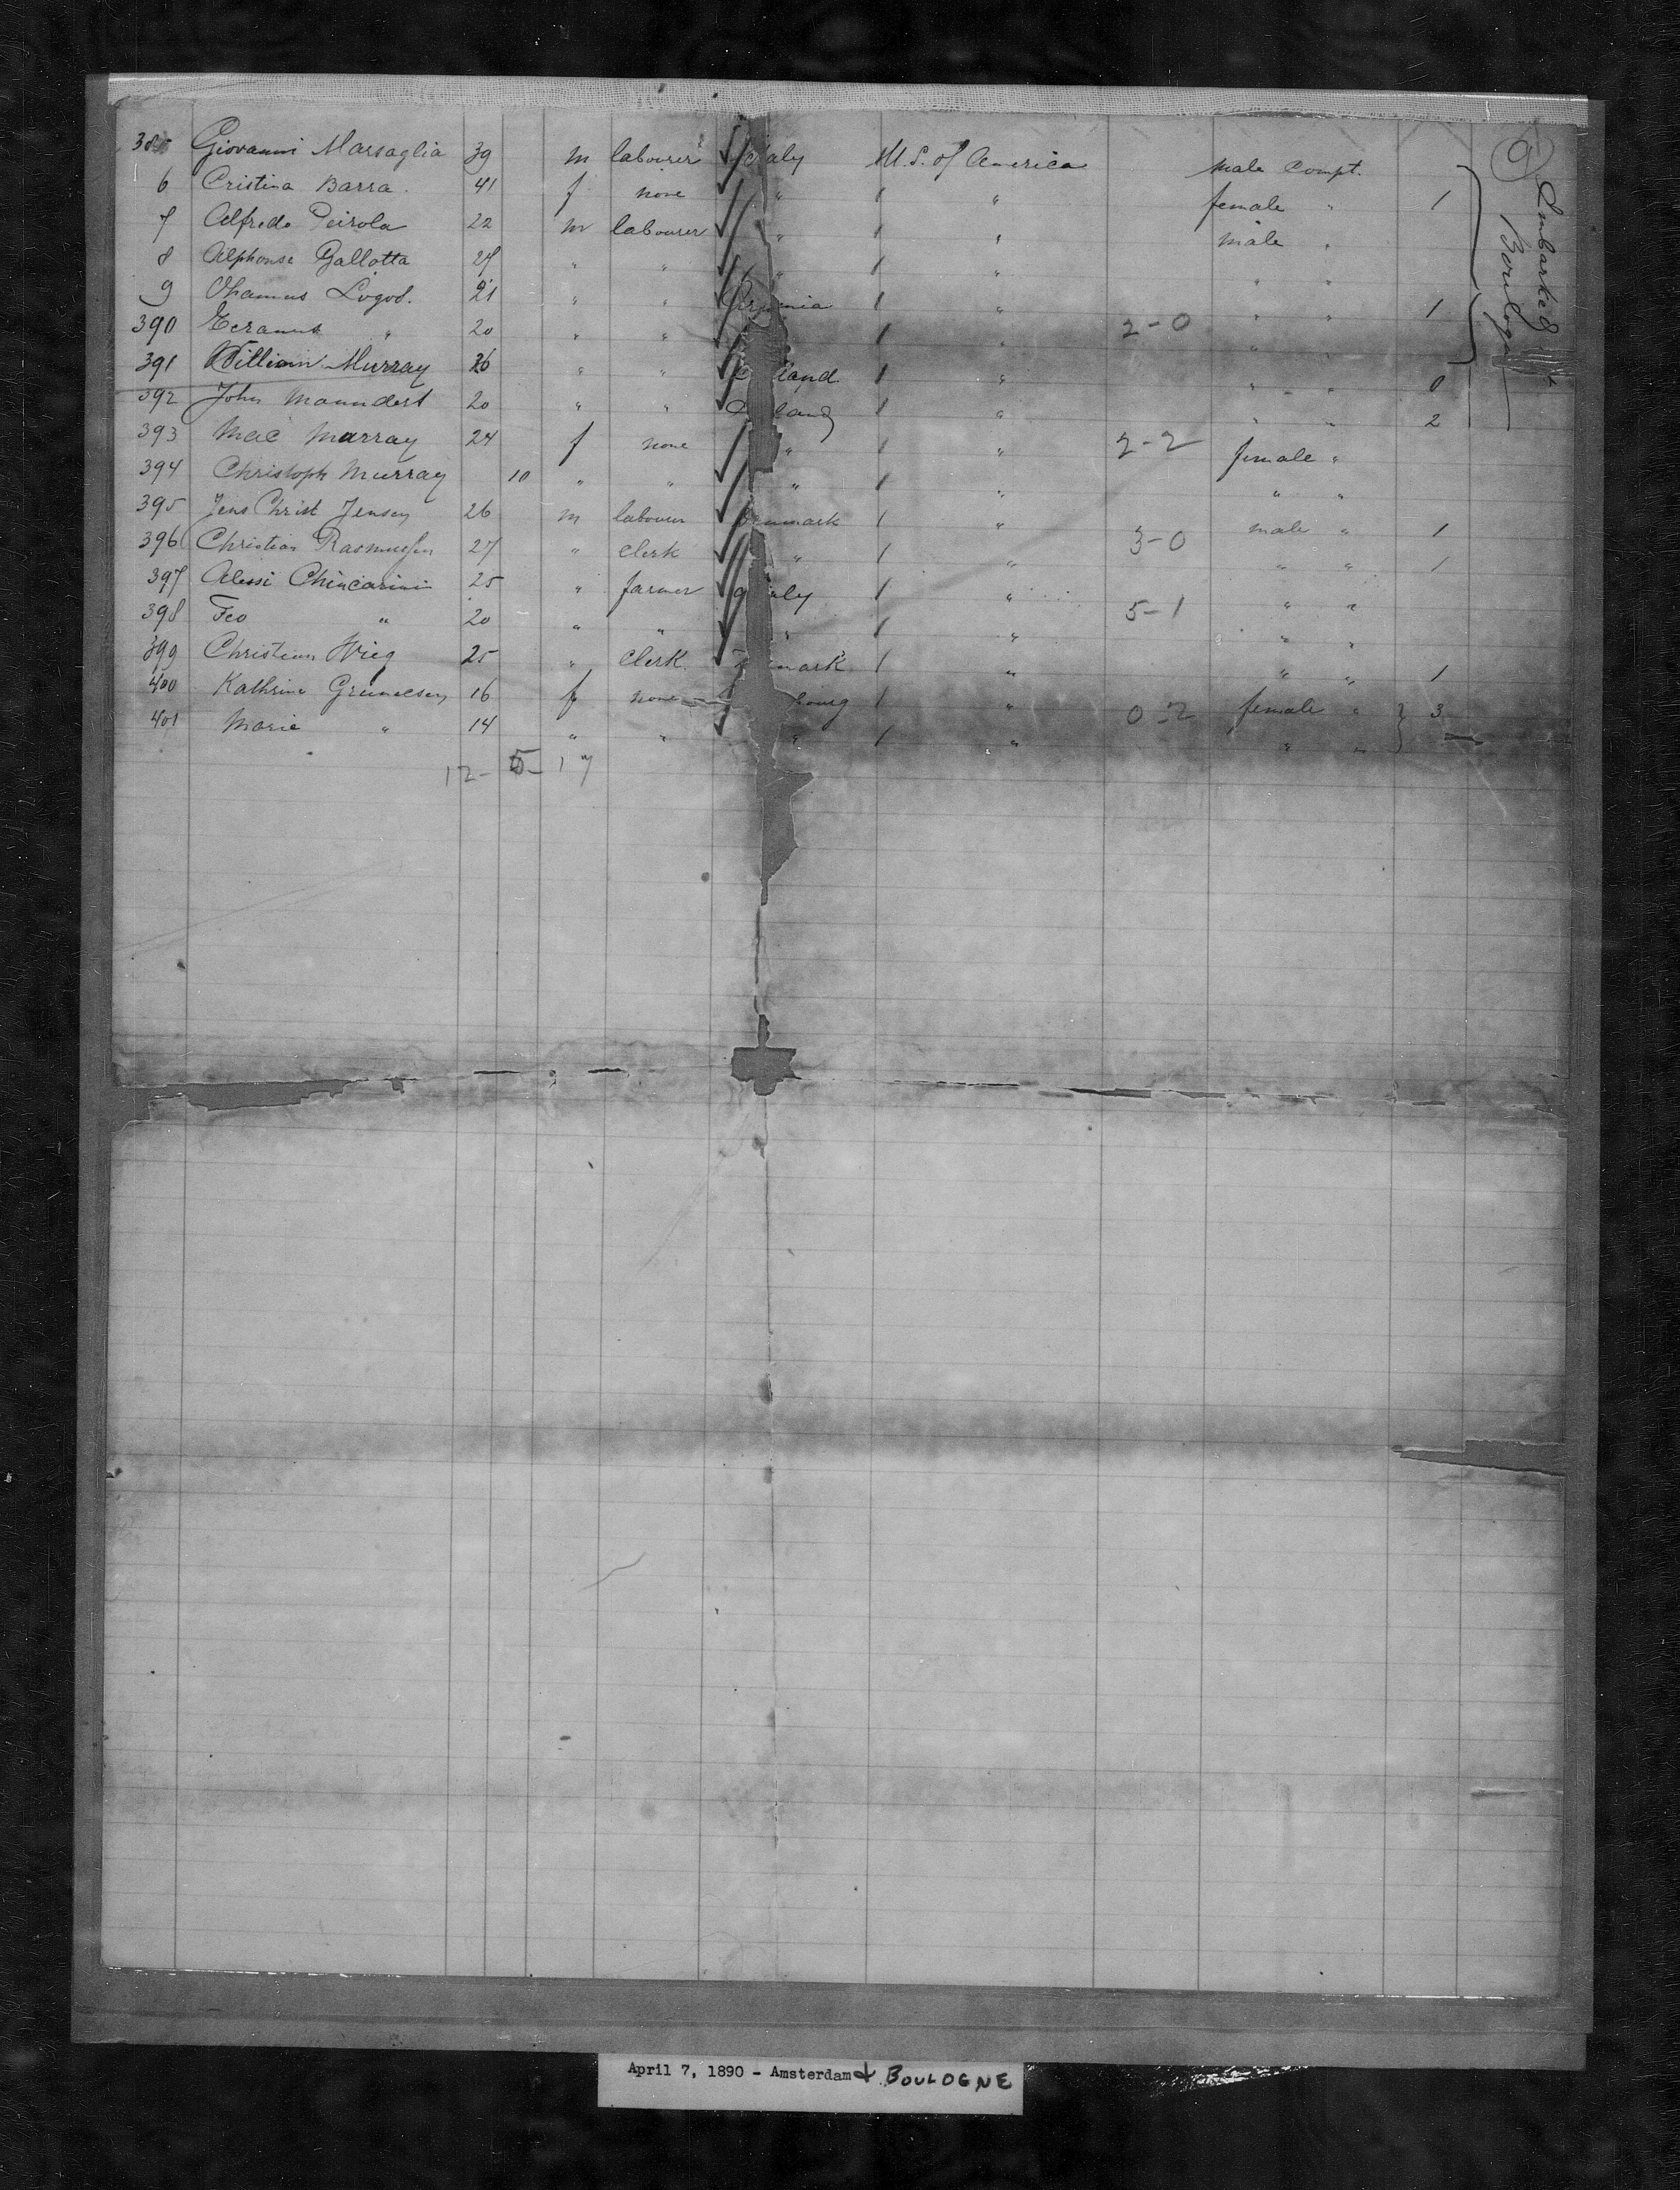 385 Giovanni Marsaglia 39 m labourer Italy U.S. of America male Compt.
6 Cristina Barra 41 f none " " female " 1
7 Alfredo Peirola 22 m labourer " " male "
8 Alphonse Gallotta " " " " " "
9 Ohannus Logod. 21 " " " " " 1
390 " 20 " " " " 2-0 " "
391 William Murray 26 " " land " " " 0
392 John 20 " " land " " " 2
393 Mac Murray 24 f none " " 2-2 female "
394 Christoph Murray 10 " " " " " "
395 Jens Christ Jensen 26 m labourer Denmark " male " 1
396 Christian Rasmussen 27 " clerk " " 3-0 " " 1
397 Alessi Chincarini 25 " farmer Italy " " "
398 Feo " 20 " " " " 5-1 " "
399 Christian 25 " clerk mark " " " 1
400 Kathrine 16 f none bourg " female " 3
401 Marie " 14 " " " " 0-2 " "
12-5-17
6 Embarked at
Boulogne
April 7, 1890 - Amsterdam + BOULOGNE